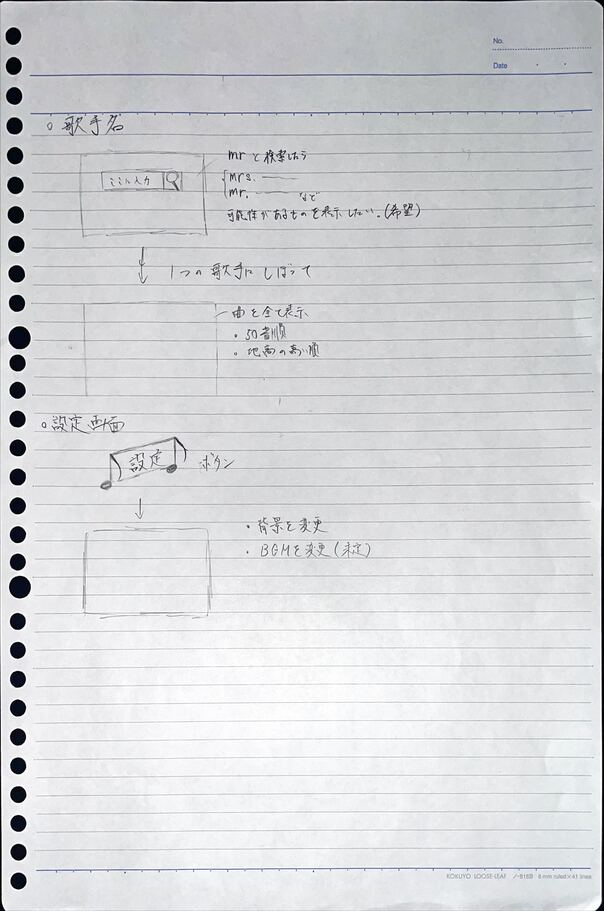 No.
Date
○歌手名
mrと検索したら
ここに入力
mrs.
mr. など
可能性があるものを表示したい。(希望)
1つの歌手にしぼって
曲を全て表示
・50音順
・知高の高い順
○設定画面
設定 ボタン
・背景を変更
・BGMを変更(未定)
KOKUYO LOOSE-LEAF ノ-816B 6 mm ruled×41 lines